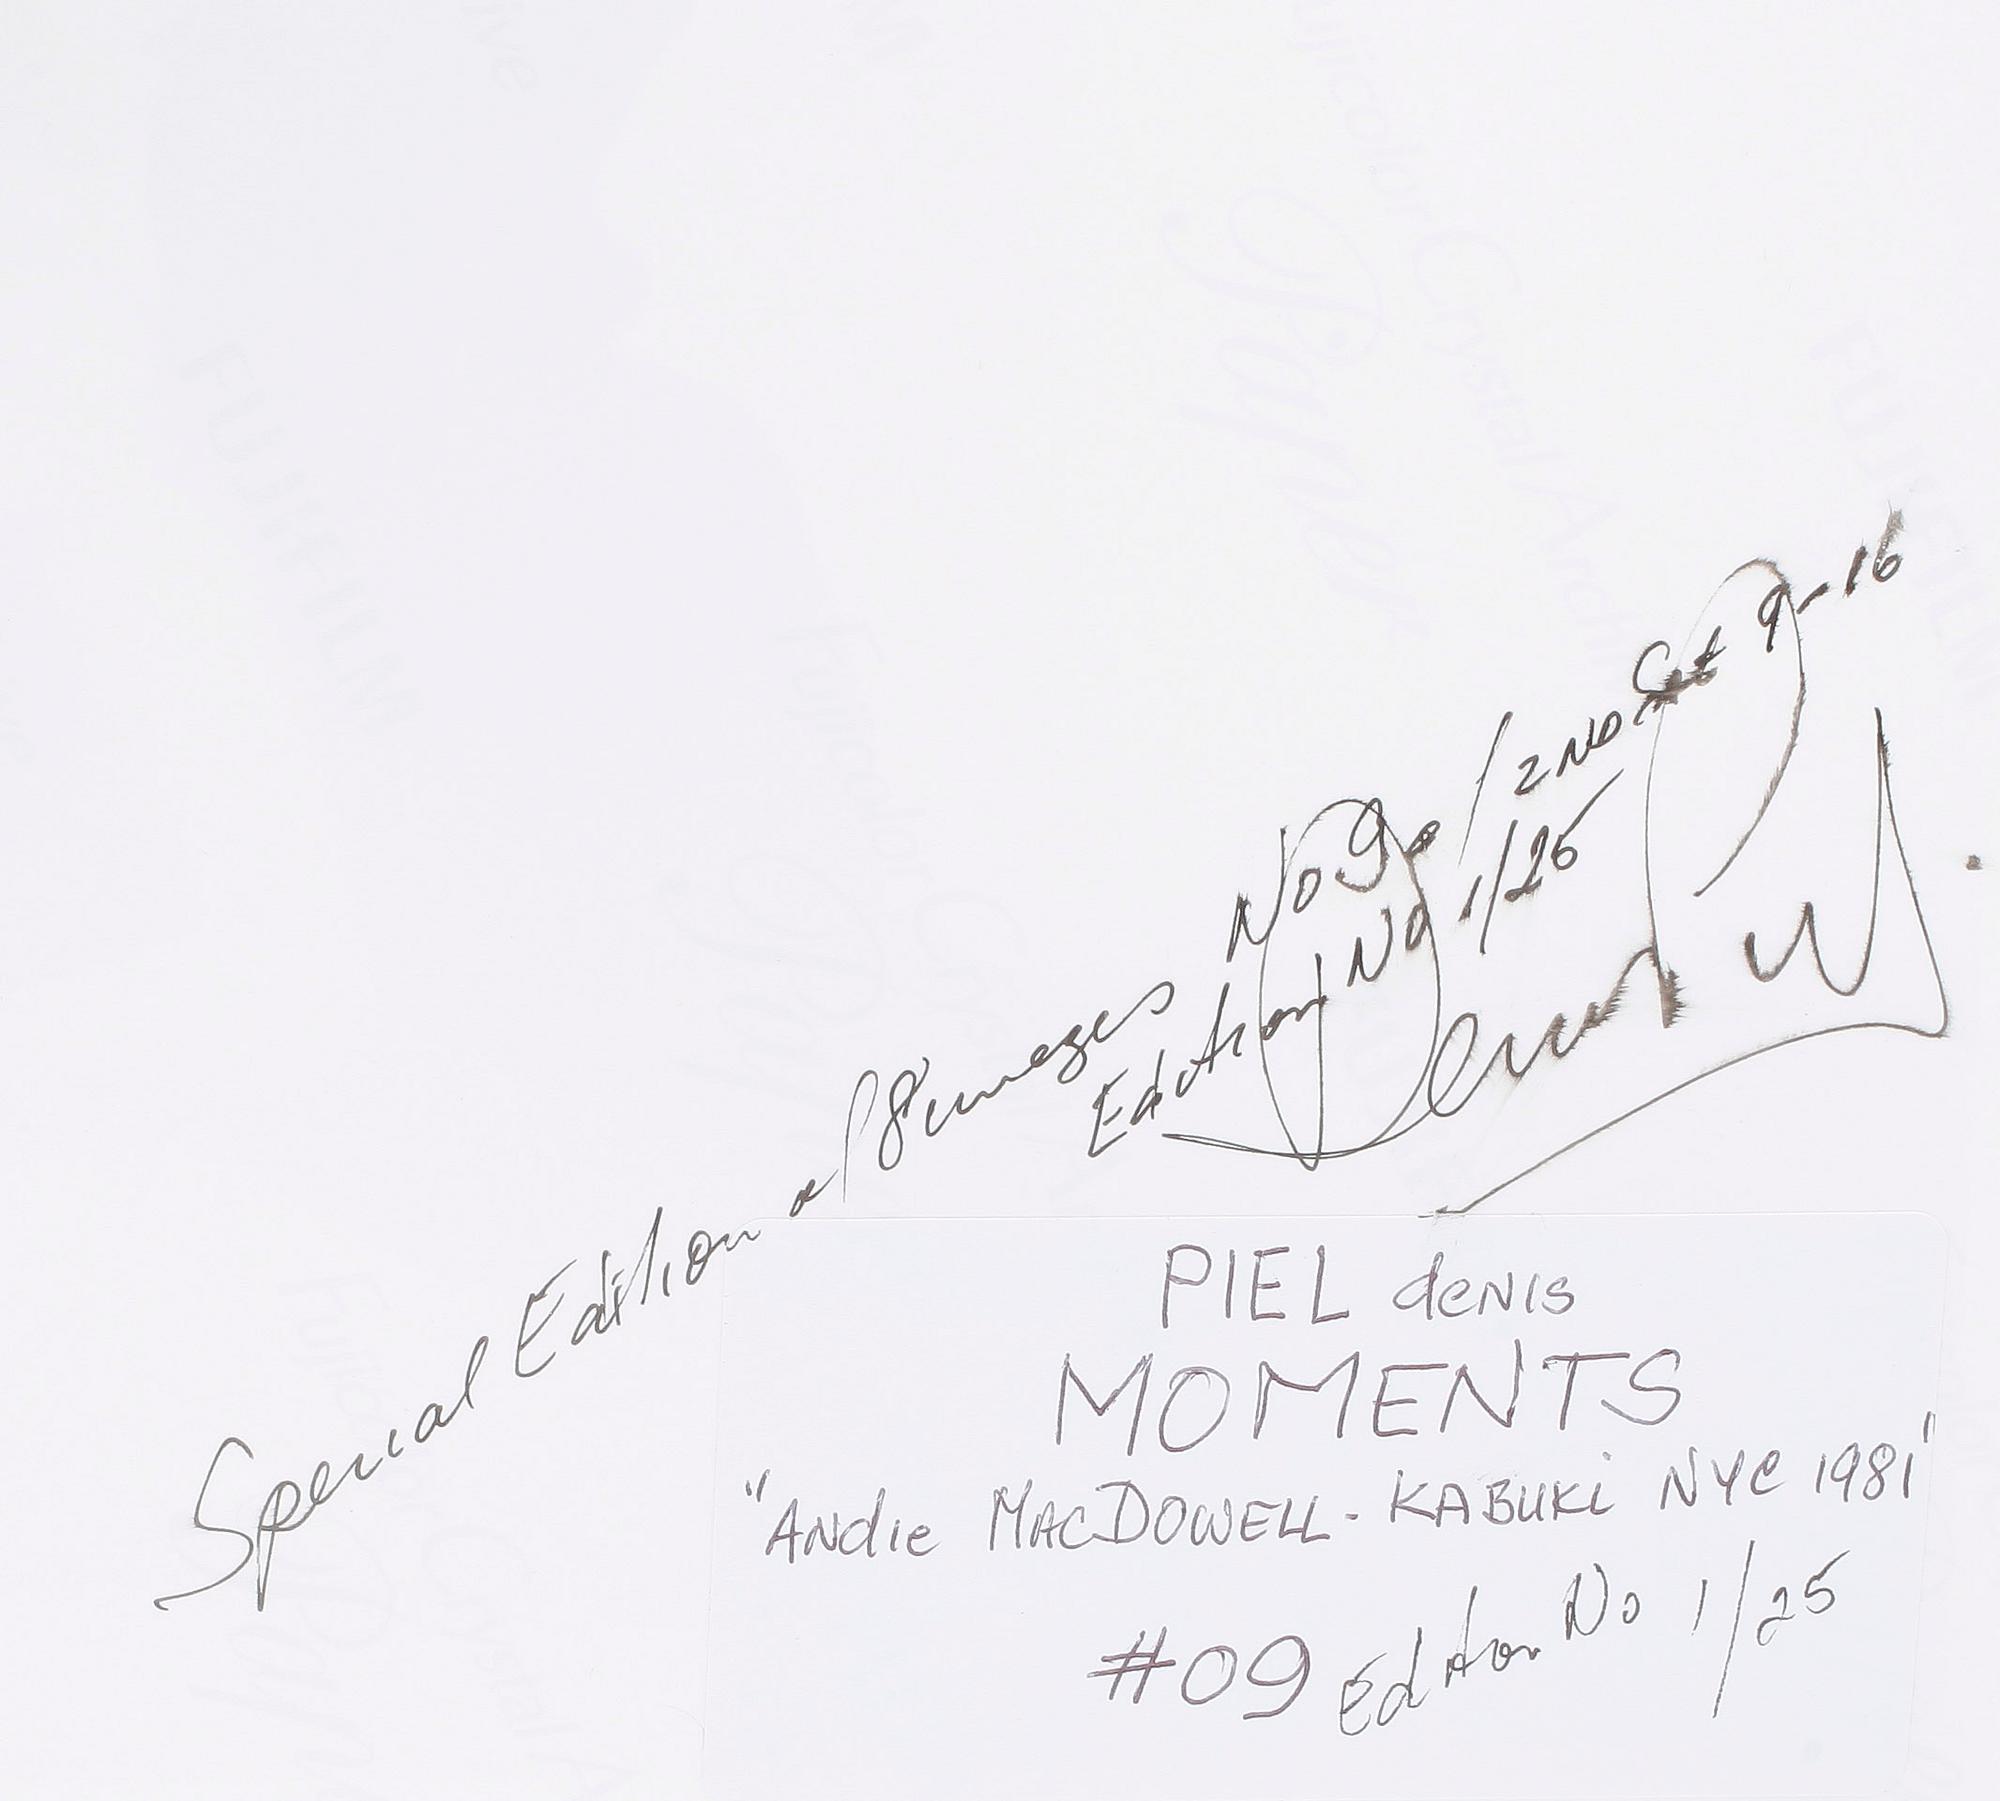 Special Edition of 8 images No 9 / 2ND Set 9-16
Edition No 1/25
Denis Piel.
PIEL denis
MOMENTS
"ANdie MACDOWELL - KABUKi NYC 1981"
#09 Edition No 1/25
FUJIFILM
Fujicolor Crystal Archive
Paper